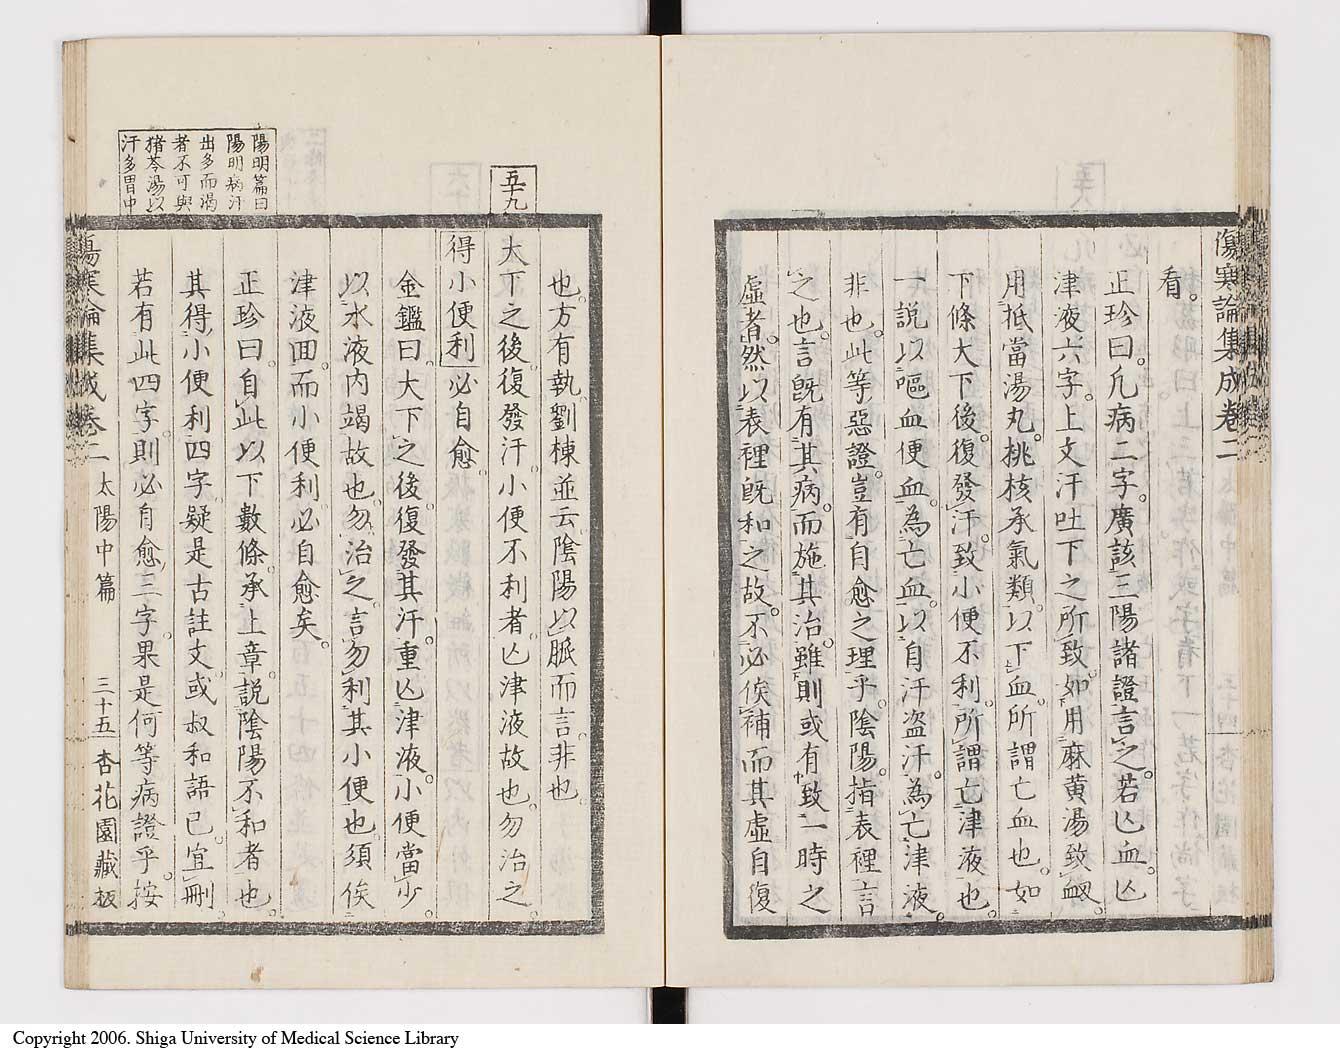 傷寒論集成卷二
看。
正珍曰。凡病二字。廣該三陽諸證言之。若亾血。亾
津液六字。上文汗吐下之所致。如用麻黃湯致衂。
用抵當湯丸。桃核承氣類。以下血。所謂亡血也。如
下條大下後。復發汗。致小便不利。所謂亡津液也。
一說以嘔血便血。為亡血。以自汗盜汗。為亡津液。
非也。此等惡證。豈有自愈之理乎。陰陽。指表裡言
之也。言既有其病。而施其治。雖則或有致一時之
虛者。然以表裡既和之故。不必俟補而其虛自復
也。方有執。劉棟並云。陰陽以脈而言。非也。
五十九
大下之後。復發汗。小便不利者。亾津液故也。勿治之。
得小便利。必自愈。
金鑑曰。大下之後。復發其汗。重亾津液。小便當少。
以水液内竭故也。勿治之。言勿利其小便也。須俟
津液回。而小便利。必自愈矣。
正珍曰。自此以下數條。承上章。說陰陽不和者也。
其得小便利四字。疑是古註文。或叔和語已。宜刪。
若有此四字。則必自愈三字。果是何等病證乎。按
陽明篇曰
陽明病汗
出多而渴
者不可與
猪苓湯以
汗多胃中
傷寒論集成卷二 太陽中篇 三十五 杏花園藏板
Copyright 2006. Shiga University of Medical Science Library